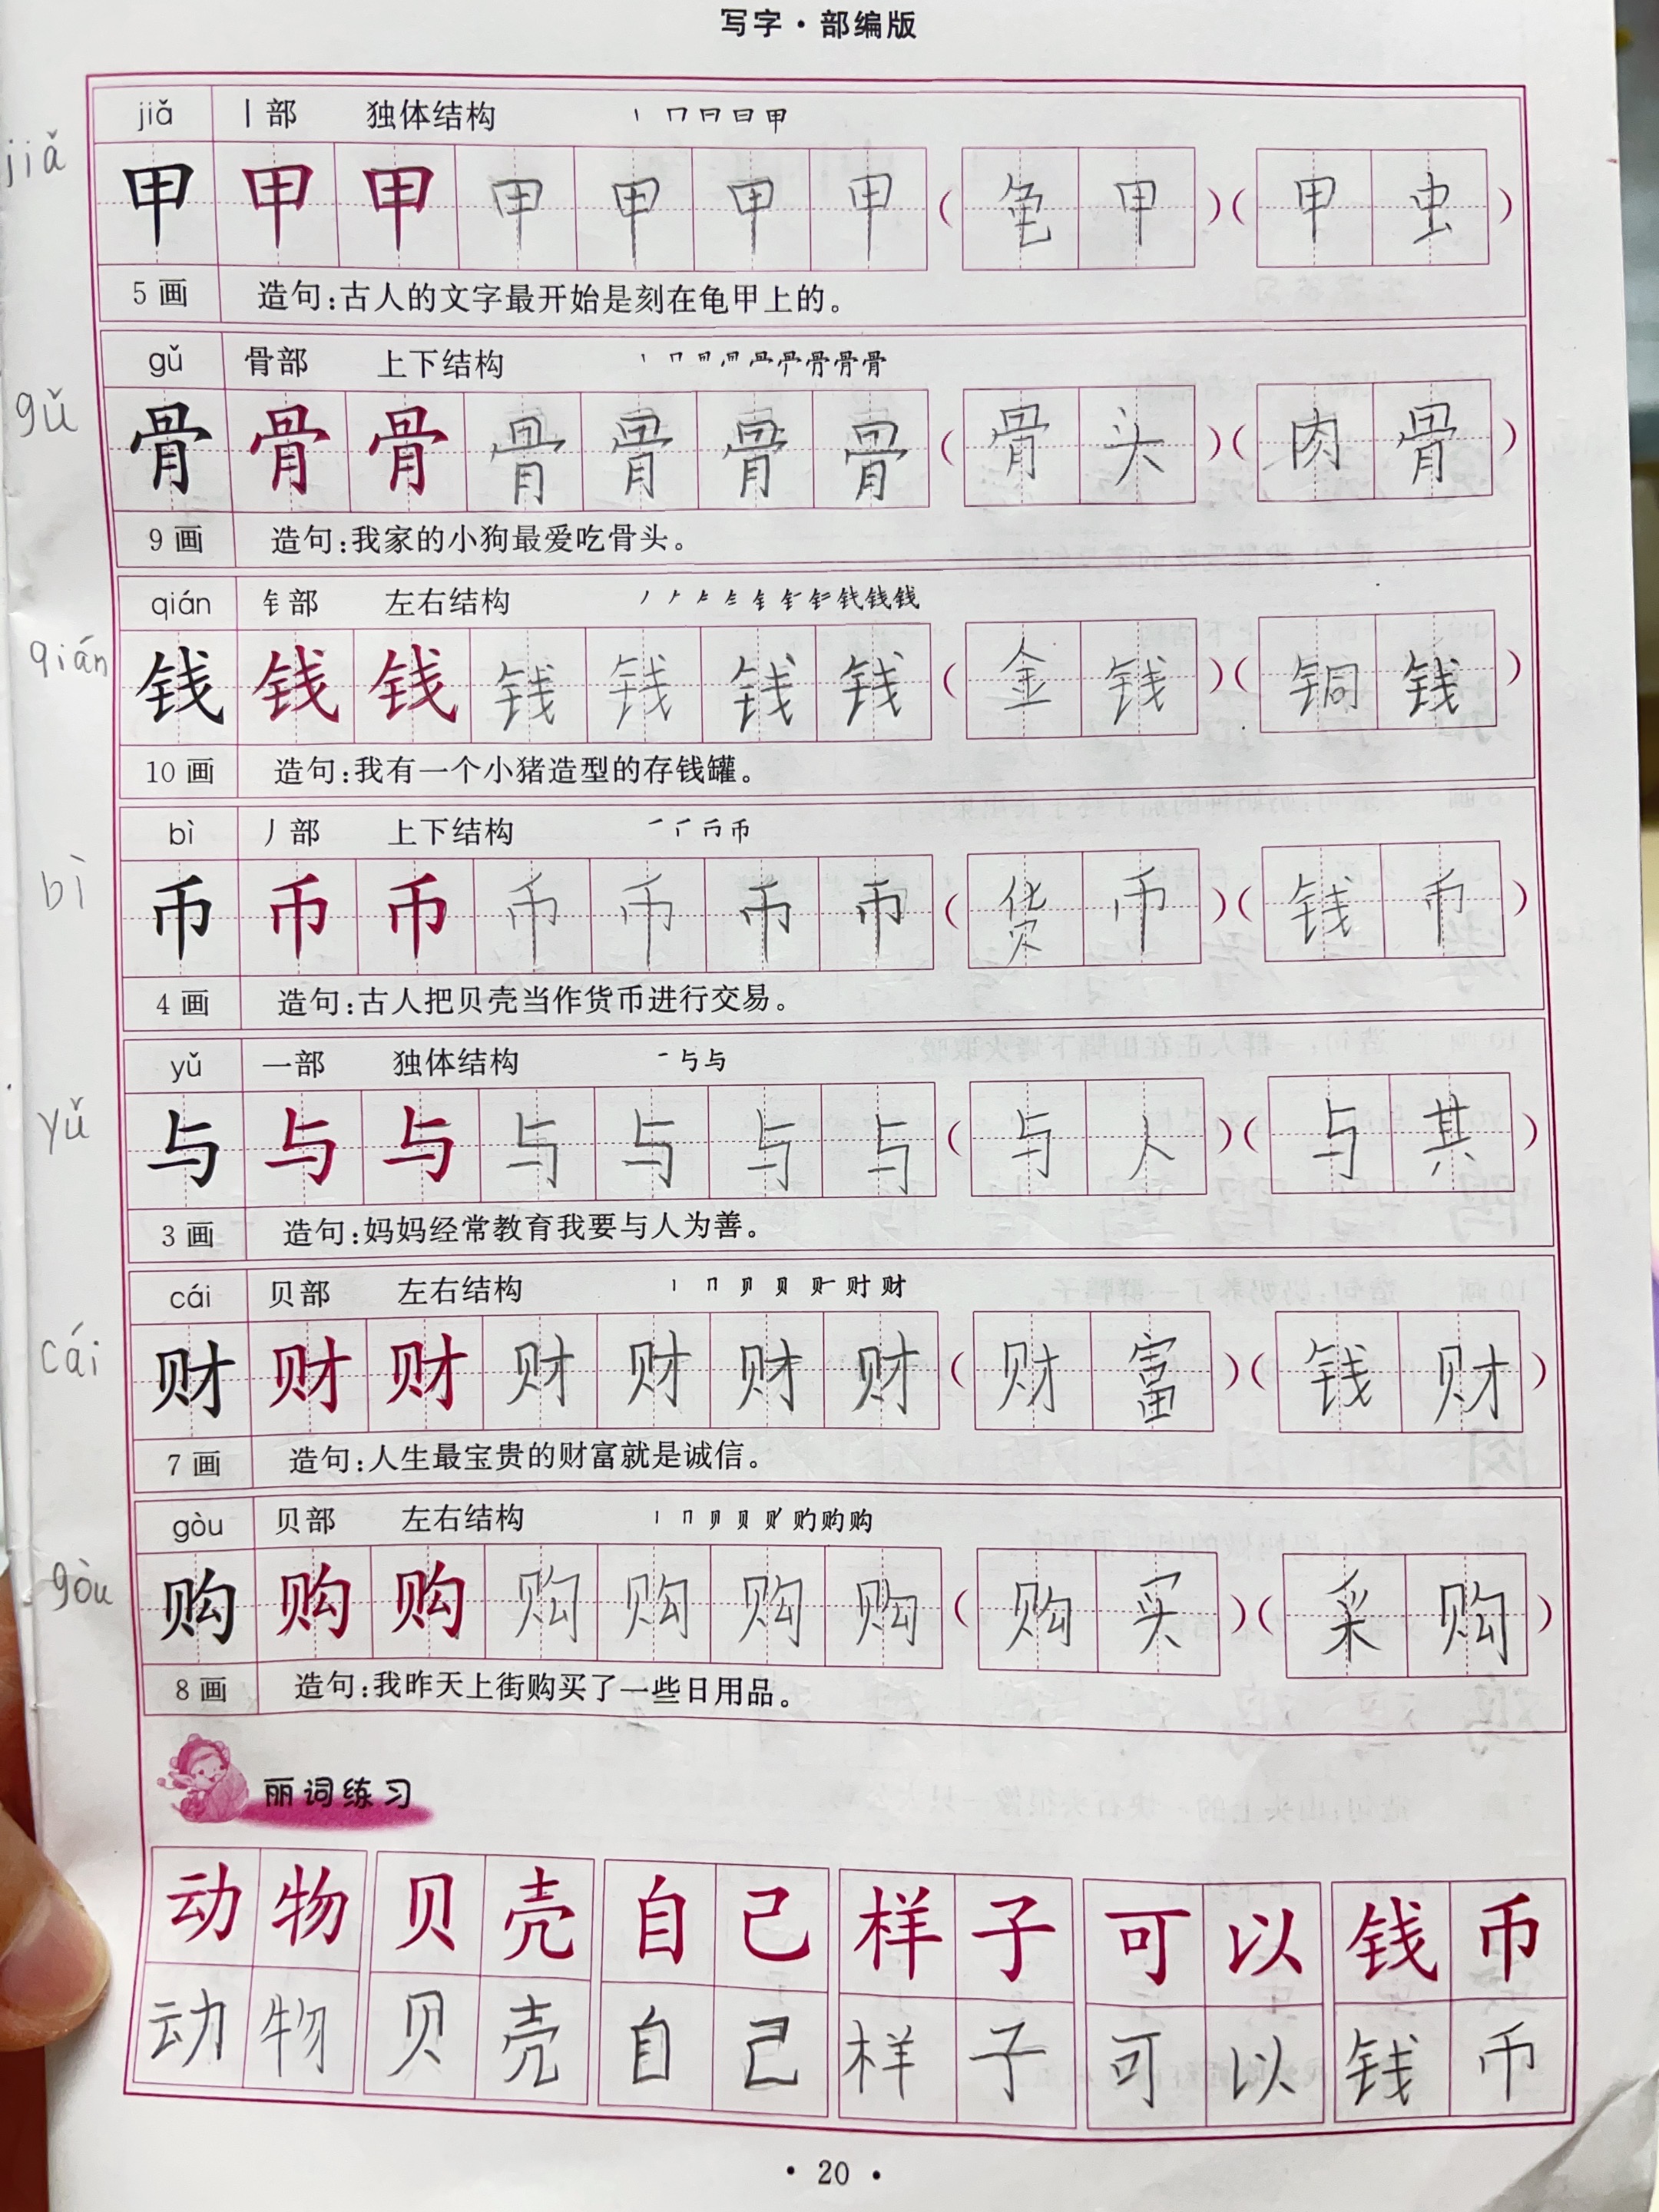 写字·部编版
jiǎ 丨部 独体结构
jiǎ 甲 甲 甲 甲 甲 甲 甲 (龟甲)(甲虫)
5画 造句:古人的文字最开始是刻在龟甲上的。
gǔ 骨部 上下结构
gǔ 骨 骨 骨 骨 骨 骨 骨 (骨头)(肉骨)
9画 造句:我家的小狗最爱吃骨头。
qián 钅部 左右结构
qián 钱 钱 钱 钱 钱 钱 钱 (金钱)(铜钱)
10画 造句:我有一个小猪造型的存钱罐。
bì 丿部 上下结构
bì 币 币 币 币 币 币 币 (货币)(钱币)
4画 造句:古人把贝壳当作货币进行交易。
yǔ 一部 独体结构
yǔ 与 与 与 与 与 与 与 (与人)(与其)
3画 造句:妈妈经常教育我要与人为善。
cái 贝部 左右结构
cái 财 财 财 财 财 财 财 (财富)(钱财)
7画 造句:人生最宝贵的财富就是诚信。
gòu 贝部 左右结构
gòu 购 购 购 购 购 购 购 (购买)(采购)
8画 造句:我昨天上街购买了一些日用品。
丽词练习
动物 贝壳 自己 样子 可以 钱币
动物 贝壳 自己 样子 可以 钱币
·20·